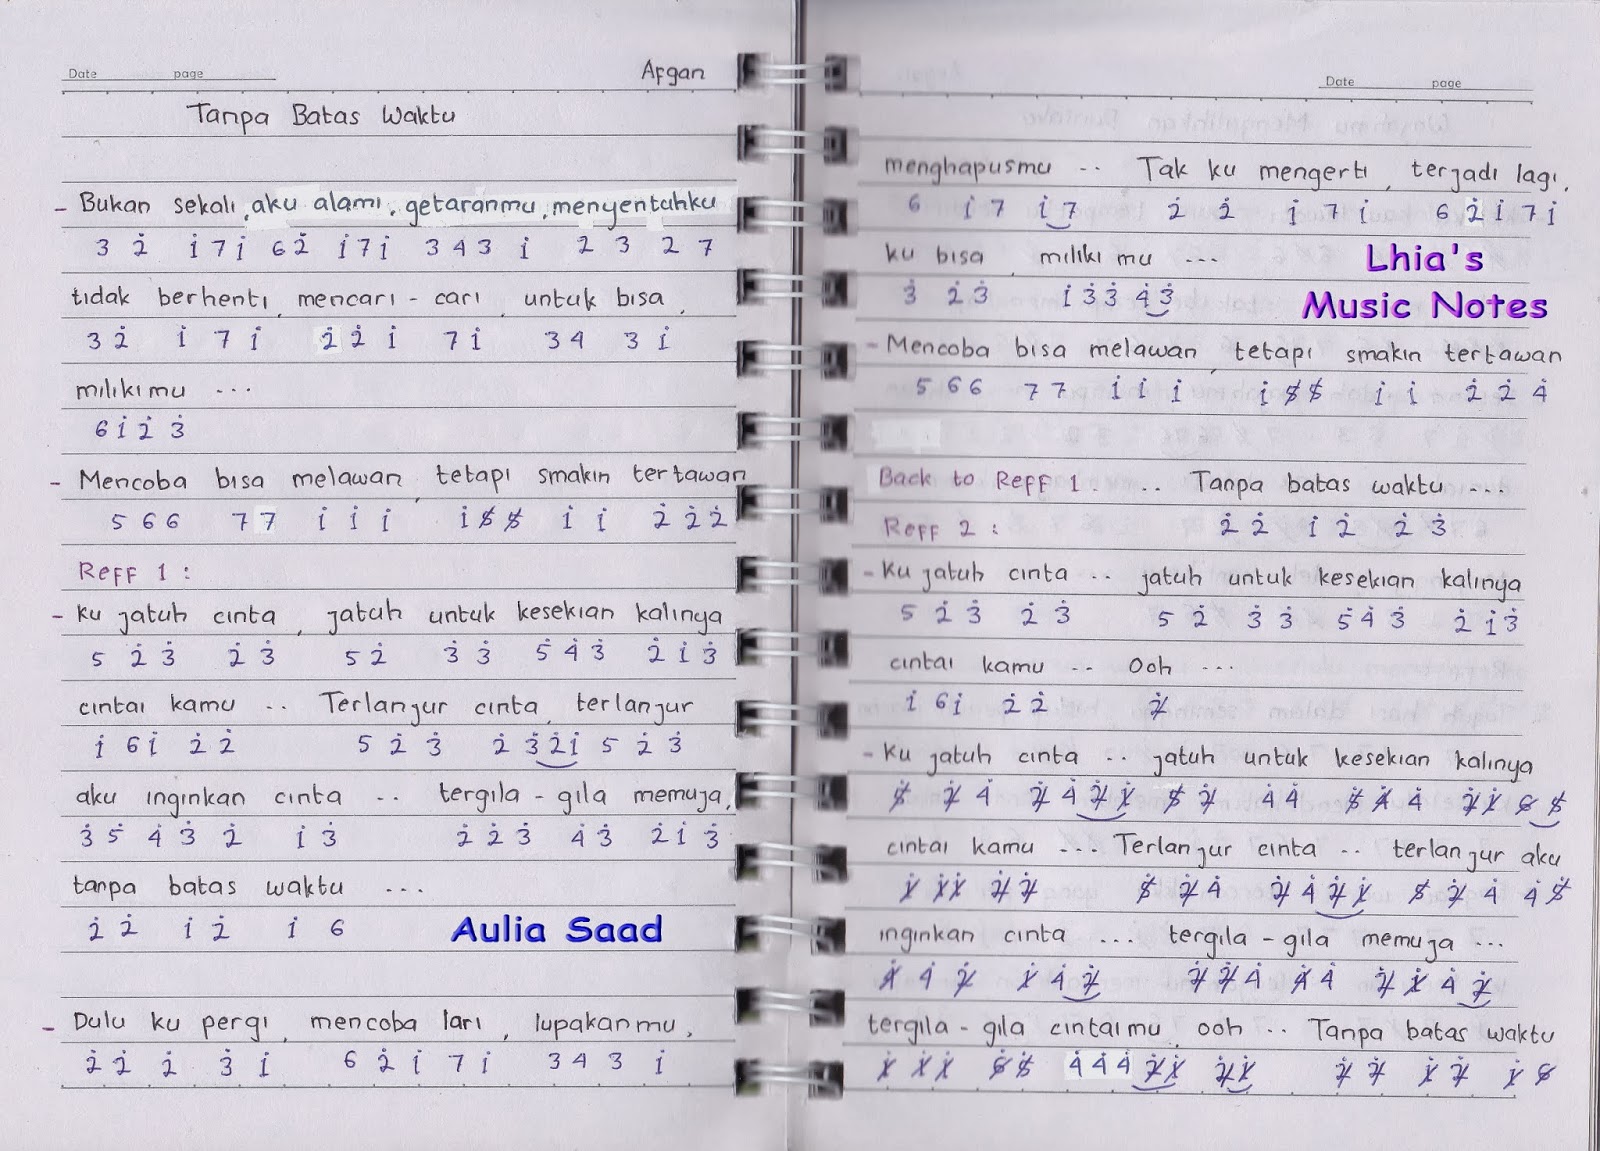 Date page Afgan
Tanpa Batas Waktu
- Bukan sekali, aku alami, getaranmu, menyentuhku
3 2̇ i̇ 7 i̇ 6 2̇ i̇ 7 i̇ 3 4 3 i̇ 2 3 2 7
tidak berhenti, mencari - cari, untuk bisa,
3 2̇ i̇ 7 i̇ 2̇ 2̇ i̇ 7 i̇ 3 4 3 i̇
milikimu ...
6 i̇ 2̇ 3̇
- Mencoba bisa melawan, tetapi smakin tertawan
5 6 6 7 7 i̇ i̇ i̇ i̇ 5̸ 5̸ i̇ i̇ 2̇ 2̇ 2̇
Reff 1 :
- Ku jatuh cinta, jatuh untuk kesekian kalinya
5 2̇ 3̇ 2̇ 3̇ 5 2̇ 3̇ 3̇ 5̇ 4̇ 3̇ 2̇ i̇ 3̇
cintai kamu .. Terlanjur cinta, terlanjur
i̇ 6 i̇ 2̇ 2̇ 5 2̇ 3̇ 2̇ 3̇ 2̇ i̇ 5 2̇ 3̇
aku inginkan cinta .. tergila - gila memuja,
3̇ 5̇ 4̇ 3̇ 2̇ i̇ 3̇ 2̇ 2̇ 3̇ 4̇ 3̇ 2̇ i̇ 3̇
tanpa batas waktu ...
2̇ 2̇ i̇ 2̇ i̇ 6
Aulia Saad
- Dulu ku pergi, mencoba lari, lupakanmu,
2̇ 2̇ 2̇ 3̇ i̇ 6 2̇ i̇ 7 i̇ 3 4 3 i̇
Date page
menghapusmu .. Tak ku mengerti, terjadi lagi,
6 i̇ 7 i̇ 7 2̇ 2̇ i̇ 7 i̇ 6 2̇ i̇ 7 i̇
ku bisa, miliki mu ...
3̇ 2̇ 3̇ i̇ 3̇ 3̇ 4̇ 3̇
Lhia's
Music Notes
- Mencoba bisa melawan, tetapi smakin tertawan
5 6 6 7 7 i̇ i̇ i̇ i̇ 5̸ 5̸ i̇ i̇ 2̇ 2̇ 4̇
Back to Reff 1 . .. Tanpa batas waktu ...
Reff 2 : 2̇ 2̇ i̇ 2̇ 2̇ 3̇
- Ku jatuh cinta .. jatuh untuk kesekian kalinya
5 2̇ 3̇ 2̇ 3̇ 5 2̇ 3̇ 3̇ 5̇ 4̇ 3̇ 2̇ i̇ 3̇
cintai kamu .. Ooh ...
i̇ 6 i̇ 2̇ 2̇ 2̸̇
- Ku jatuh cinta .. jatuh untuk kesekian kalinya
5̸ 2̸̇ 4̇ 2̸̇ 4̇ 2̸̇ 1̸̇ 5̸ 2̸̇ 4̇ 4̇ 5̸̇ 4̸̇ 4̇ 2̸̇ 1̸̇ 6̸ 5̸
cintai kamu ... Terlanjur cinta .. terlanjur aku
1̸̇ 1̸̇ 1̸̇ 2̸̇ 2̸̇ 5̸ 2̸̇ 4̇ 2̸̇ 4̇ 2̸̇ 1̸̇ 5̸ 2̸̇ 4̇ 4̇ 5̸̇
inginkan cinta ... tergila - gila memuja ...
4̸̇ 4̇ 2̸̇ 1̸̇ 4̇ 2̸̇ 2̸̇ 2̸̇ 4̇ 4̸̇ 4̇ 2̸̇ 1̸̇ 4̇ 2̸̇
tergila - gila cintaimu, ooh .. Tanpa batas waktu
1̸̇ 1̸̇ 1̸̇ 6̸ 6̸ 4̇ 4̇ 4̇ 2̸̇ 1̸̇ 2̸̇ 1̸̇ 2̸̇ 2̸̇ 1̸̇ 2̸̇ 1̸̇ 6̸